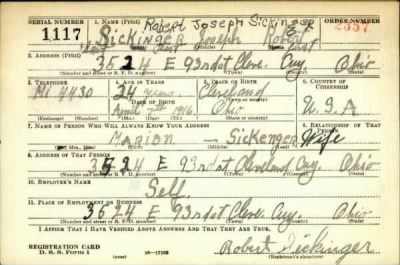 SERIAL NUMBER 1. NAME (Print) Robert Joseph Sickinger ORDER NUMBER
1117 Sickinger Joseph Robert
(First) (Last)
2. ADDRESS (Print)
3624 E 93rd st Cleve. Cuy. Ohio
(Number and street or R. F. D. number) (Town) (County) (State)
3. TELEPHONE 4. AGE IN YEARS 5. PLACE OF BIRTH 6. COUNTRY OF CITIZENSHIP
Mi 4430 24 years Cleveland
DATE OF BIRTH (Town or county)
April 1916 Ohio U.S.A
(Exchange) (Number) (Mo.) (Day) (Yr.) (State or country)
7. NAME OF PERSON WHO WILL ALWAYS KNOW YOUR ADDRESS 8. RELATIONSHIP OF THAT PERSON
Marion Sickenger Wife
(Mr., Mrs., Miss) (First) (Middle) (Last)
9. ADDRESS OF THAT PERSON
3624 E 93rd st Cleveland Cuy. Ohio
(Number and street or R. F. D. number) (Town) (County) (State)
10. EMPLOYER'S NAME
Self
11. PLACE OF EMPLOYMENT OR BUSINESS
3624 E 93rd st Cleve. Cuy. Ohio
(Number and street or R. F. D. number) (Town) (County) (State)
I AFFIRM THAT I HAVE VERIFIED ABOVE ANSWERS AND THAT THEY ARE TRUE.
REGISTRATION CARD
D. S. S. Form 1 Robert Sickinger
(Registrant's signature)